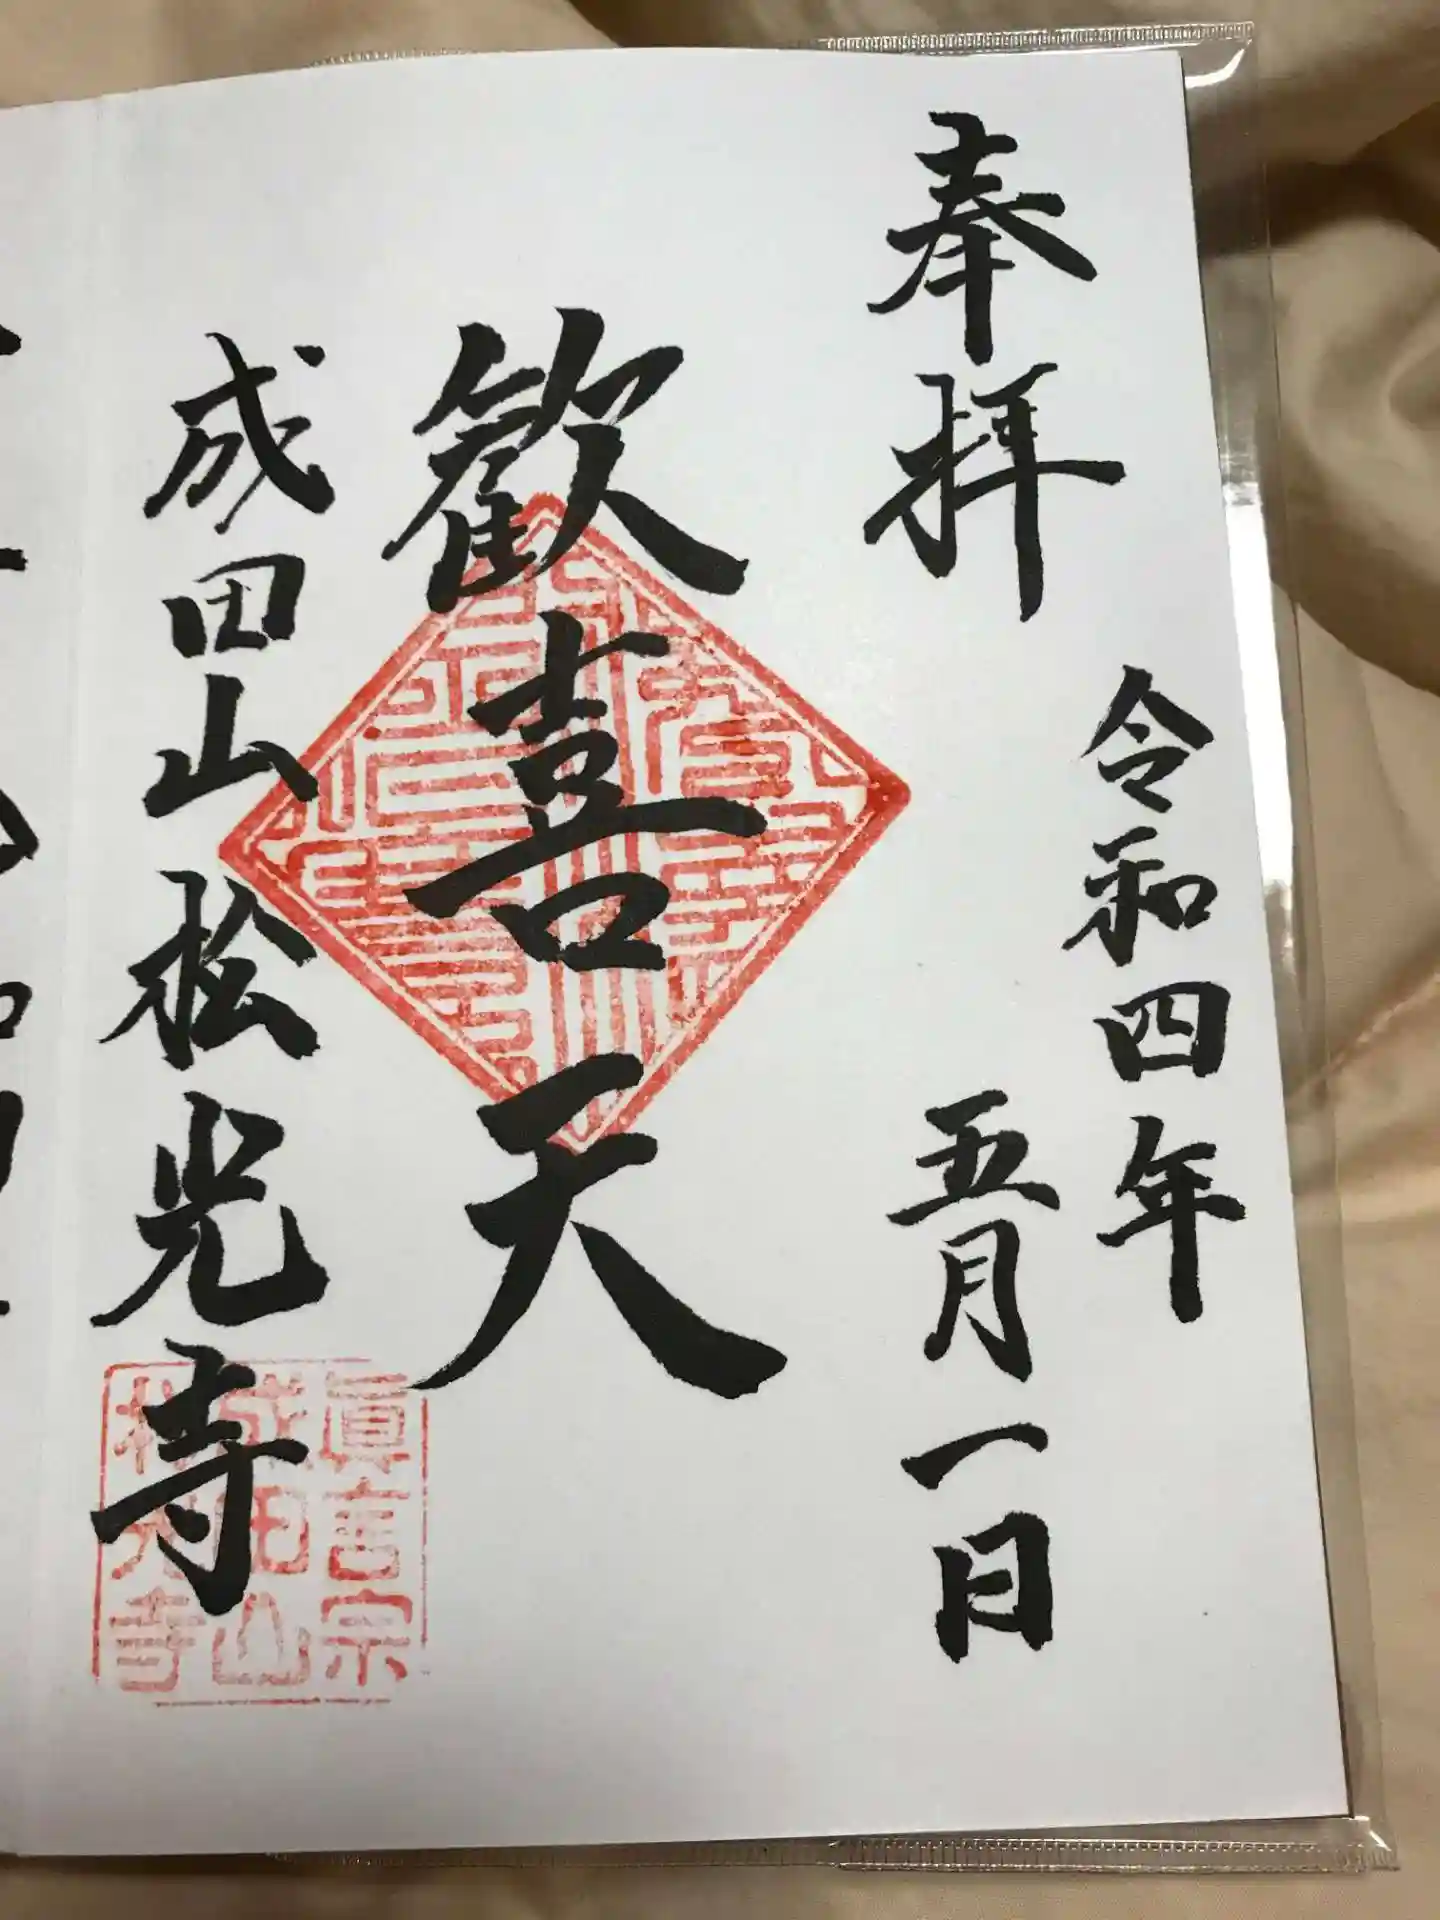 奉拝
令和四年
五月一日
歓喜天
成田山松光寺
眞言宗
成田山
松光寺